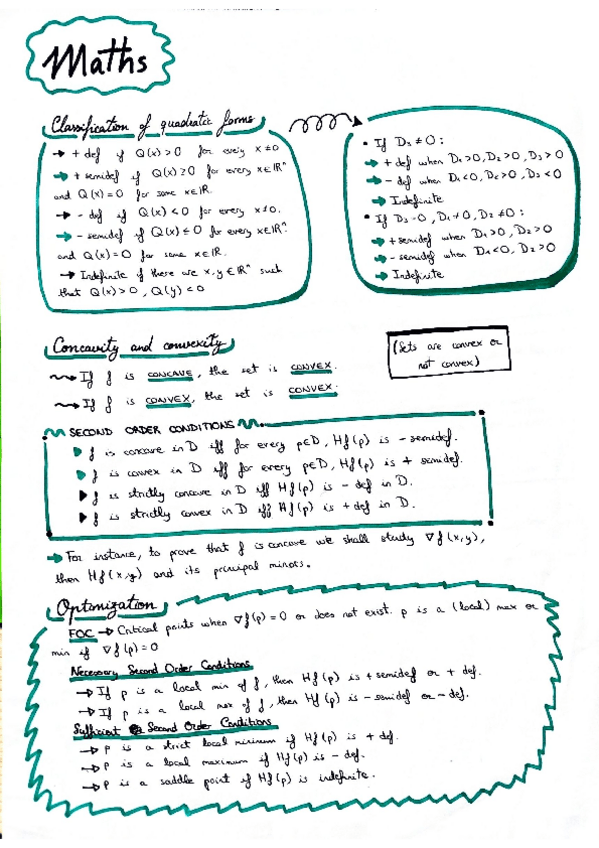 Maths
Classification of quadratic forms
→ + def if Q(x) > 0 for every x ≠ 0
→ + semidef if Q(x) ≥ 0 for every x ∈ ℝⁿ
and Q(x) = 0 for some x ∈ ℝ.
→ - def if Q(x) < 0 for every x ≠ 0.
→ - semidef if Q(x) ≤ 0 for every x ∈ ℝⁿ
and Q(x) = 0 for some x ∈ ℝ.
→ Indefinite if there are x, y ∈ ℝⁿ such
that Q(x) > 0, Q(y) < 0
• If D₃ ≠ 0:
→ + def when D₁ > 0, D₂ > 0, D₃ > 0
→ - def when D₁ < 0, D₂ > 0, D₃ < 0
→ Indefinite
• If D₃ = 0, D₁ ≠ 0, D₂ ≠ 0:
→ + semidef when D₁ > 0, D₂ > 0
→ - semidef when D₁ < 0, D₂ > 0
→ Indefinite
Concavity and convexity
→ If f is CONCAVE, the set is CONVEX.
→ If f is CONVEX, the set is CONVEX.
(Sets are convex or
not convex)
SECOND ORDER CONDITIONS
f is concave in D iff for every p∈D, Hf(p) is - semidef.
f is convex in D iff for every p∈D, Hf(p) is + semidef.
f is strictly concave in D iff Hf(p) is - def in D.
f is strictly convex in D iff Hf(p) is + def in D.
→ For instance, to prove that f is concave we shall study ∇f(x,y),
then Hf(x,y) and its principal minors.
Optimization
FOC → Critical points when ∇f(p) = 0 or does not exist. p is a (local) max or
min if ∇f(p) = 0
Necessary Second Order Conditions
→ If p is a local min of f, then Hf(p) is + semidef or + def.
→ If p is a local max of f, then Hf(p) is - semidef or - def.
Sufficient Second Order Conditions
→ P is a strict local minimum if Hf(p) is + def.
→ P is a local maximum if Hf(p) is - def.
→ P is a saddle point if Hf(p) is indefinite.